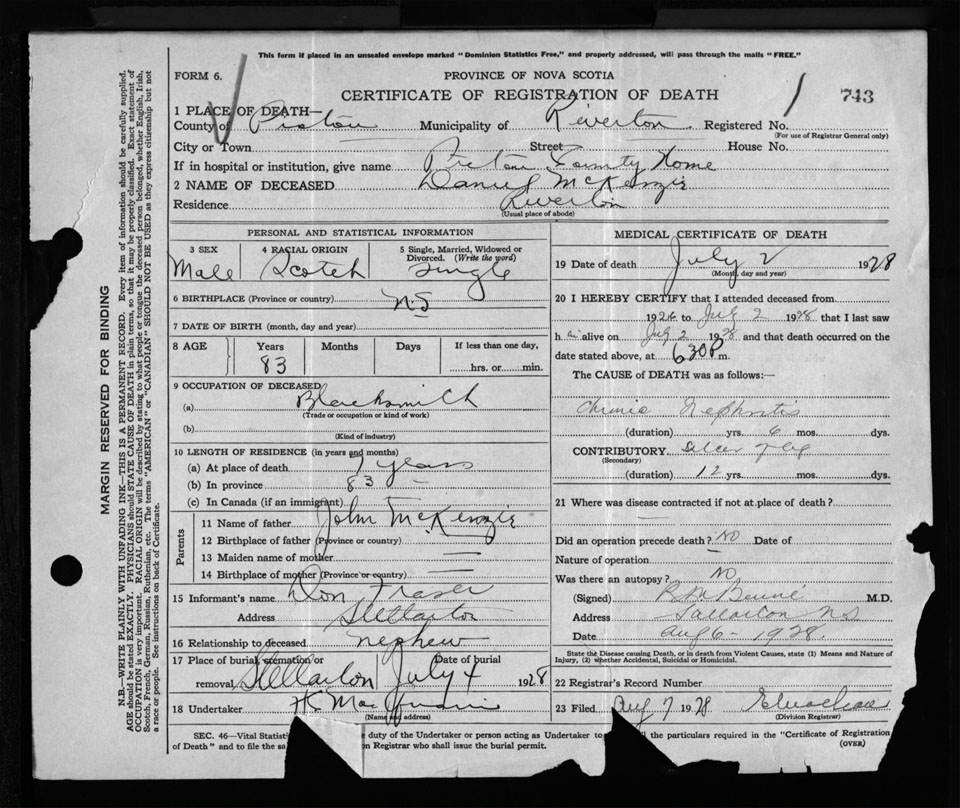 This form if placed in an unsealed envelope marked "Dominion Statistics Free," and properly addressed, will pass through the mails "FREE."
FORM 6.
PROVINCE OF NOVA SCOTIA
CERTIFICATE OF REGISTRATION OF DEATH
743
1 PLACE OF DEATH—
County of Pictou Municipality of Riverton Registered No. 1
(For use of Registrar General only)
City or Town — Street — House No.
If in hospital or institution, give name Pictou County Home
2 NAME OF DECEASED Daniel McKenzie
Residence Riverton
(Usual place of abode)
PERSONAL AND STATISTICAL INFORMATION
3 SEX 4 RACIAL ORIGIN 5 Single, Married, Widowed or Divorced. (Write the word)
Male Scotch Single
6 BIRTHPLACE (Province or country) N.S
7 DATE OF BIRTH (month, day and year)
8 AGE Years Months Days If less than one day,
83 hrs. or min.
9 OCCUPATION OF DECEASED
(a) Blacksmith
(Trade or occupation or kind of work)
(b)
(Kind of industry)
10 LENGTH OF RESIDENCE (in years and months)
(a) At place of death 7 years
(b) In province 83 —
(c) In Canada (if an immigrant)
Parents
11 Name of father John McKenzie
12 Birthplace of father (Province or country) —
13 Maiden name of mother —
14 Birthplace of mother (Province or country) —
15 Informant's name Don Fraser
Address Stellarton
16 Relationship to deceased nephew
17 Place of burial, cremation or removal Stellarton Date of burial July 4 1928
18 Undertaker
(Name and address)
MEDICAL CERTIFICATE OF DEATH
19 Date of death July 2 1928
(Month, day and year)
20 I HEREBY CERTIFY that I attended deceased from
192 to July 2 1928 that I last saw
h alive on July 2 1928 and that death occurred on the
date stated above, at 630 P m.
The CAUSE of DEATH was as follows:—
Chronic Nephritis
(duration) yrs. 6 mos. dys.
CONTRIBUTORY Ulcer of leg
(Secondary)
(duration) 12 yrs. mos. dys.
21 Where was disease contracted if not at place of death?
—
Did an operation precede death? No Date of
Nature of operation
Was there an autopsy? No
(Signed) M.D.
Address N.S
Date Aug 6 - 1928.
State the Disease causing Death, or in death from Violent Causes, state (1) Means and Nature of
Injury, (2) whether Accidental, Suicidal or Homicidal.
22 Registrar's Record Number
23 Filed Aug 7 1928
(Division Registrar)
SEC. 46—Vital Statist duty of the Undertaker or person acting as Undertaker to all the particulars required in the "Certificate of Registration
of Death" and to file the sa on Registrar who shall issue the burial permit. (OVER)
MARGIN RESERVED FOR BINDING
N.B.—WRITE PLAINLY WITH UNFADING INK—THIS IS A PERMANENT RECORD. Every item of information should be carefully supplied.
AGE should be stated EXACTLY. PHYSICIANS should STATE CAUSE OF DEATH in plain terms, so that it may be properly classified. Exact statement of
OCCUPATION is very important. RACIAL ORIGIN will be described by stating to what people or tongue the deceased person belonged, whether English, Irish,
Scotch, French, German, Russian, Ruthenian, etc. The terms "AMERICAN" or "CANADIAN" SHOULD NOT BE USED as they express citizenship but not
a race or people. See instructions on back of Certificate.